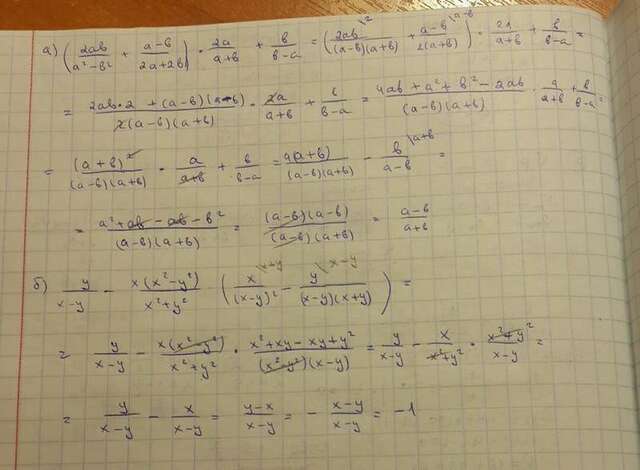 а) (2ab/(a²-b²) + (a-b)/(2a+2b)) · 2a/(a+b) + b/(b-a) = (2ab\²/((a-b)(a+b)) + (a-b)\ᵃ⁻ᵇ/(2(a+b))) · 2a/(a+b) + b/(b-a) =
= (2ab·2 + (a-b)(a-b))/(2(a-b)(a+b)) · 2a/(a+b) + b/(b-a) = (4ab + a² + b² - 2ab)/((a-b)(a+b)) · a/(a+b) + b/(b-a) =
= (a+b)²/((a-b)(a+b)) · a/(a+b) + b/(b-a) = a(a+b)/((a-b)(a+b)) - b\ᵃ⁺ᵇ/(a-b) =
= (a² + ab - ab - b²)/((a-b)(a+b)) = (a-b)(a-b)/((a-b)(a+b)) = (a-b)/(a+b)
б) y/(x-y) - x(x²-y²)/(x²+y²) (x\ˣ⁺ʸ/(x-y)² - y\ˣ⁻ʸ/((x-y)(x+y))) =
= y/(x-y) - x(x²-y²)/(x²+y²) · (x²+xy-xy+y²)/((x²-y²)(x-y)) = y/(x-y) - x/(x²+y²) · (x²+y²)/(x-y) =
= y/(x-y) - x/(x-y) = (y-x)/(x-y) = - (x-y)/(x-y) = -1